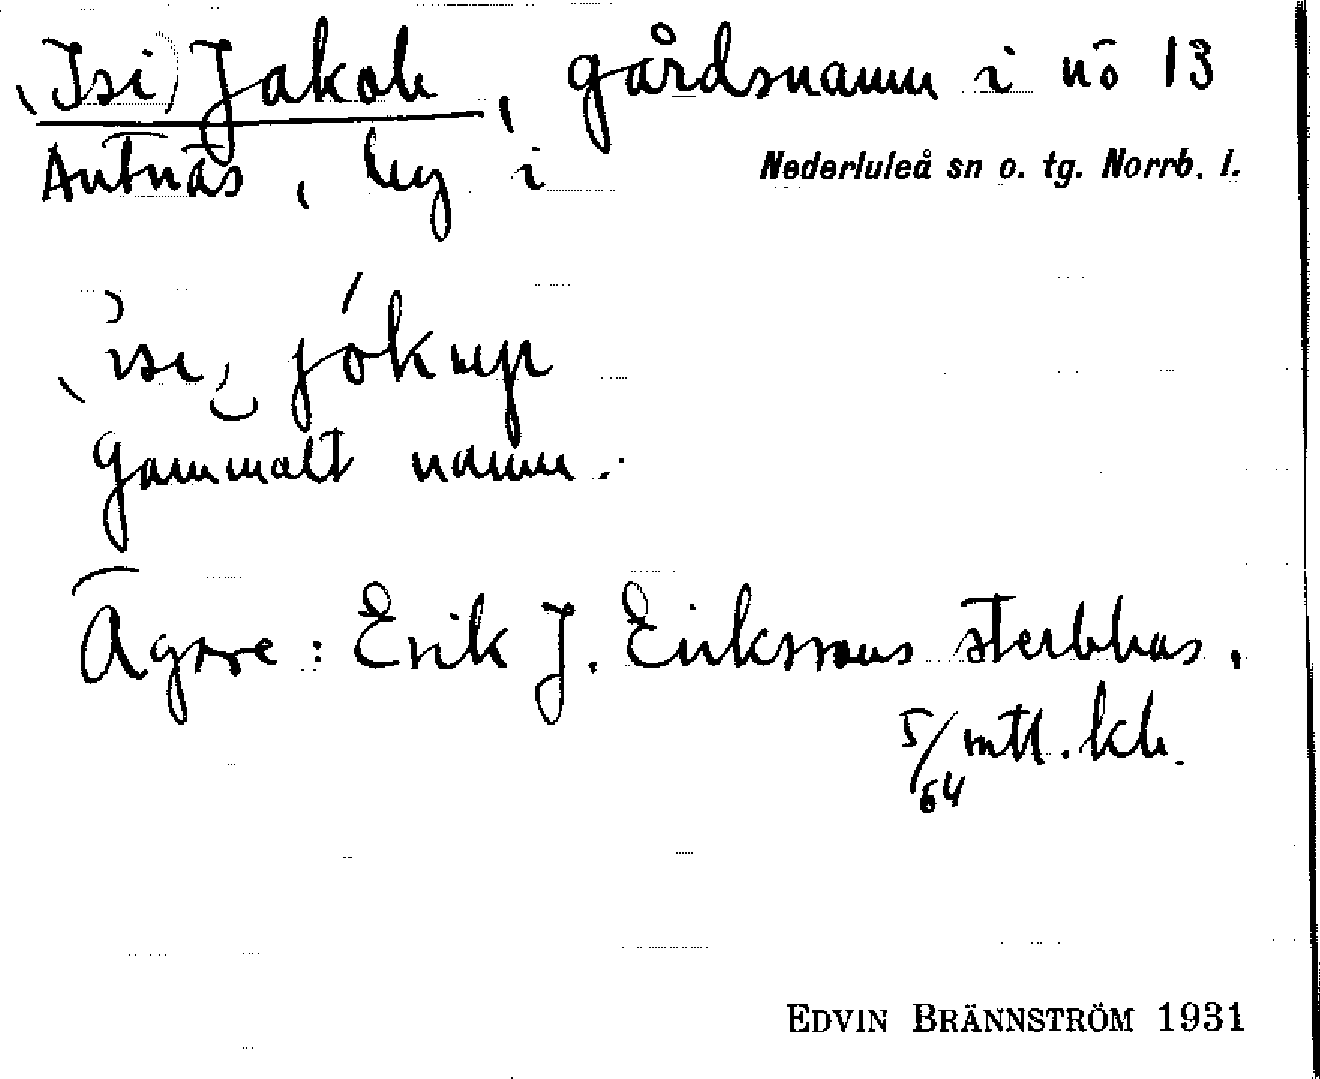 (Isi) Jakob, gårdsnamn i nö 13
Antnäs, by i Nederluleå sn o. tg. Norrb. l.
(isi) jókup
Gammalt namn.
Ägare: Erik J. Erikssons sterbhus.
5/64 mtl. kb.
EDVIN BRÄNNSTRÖM 1931